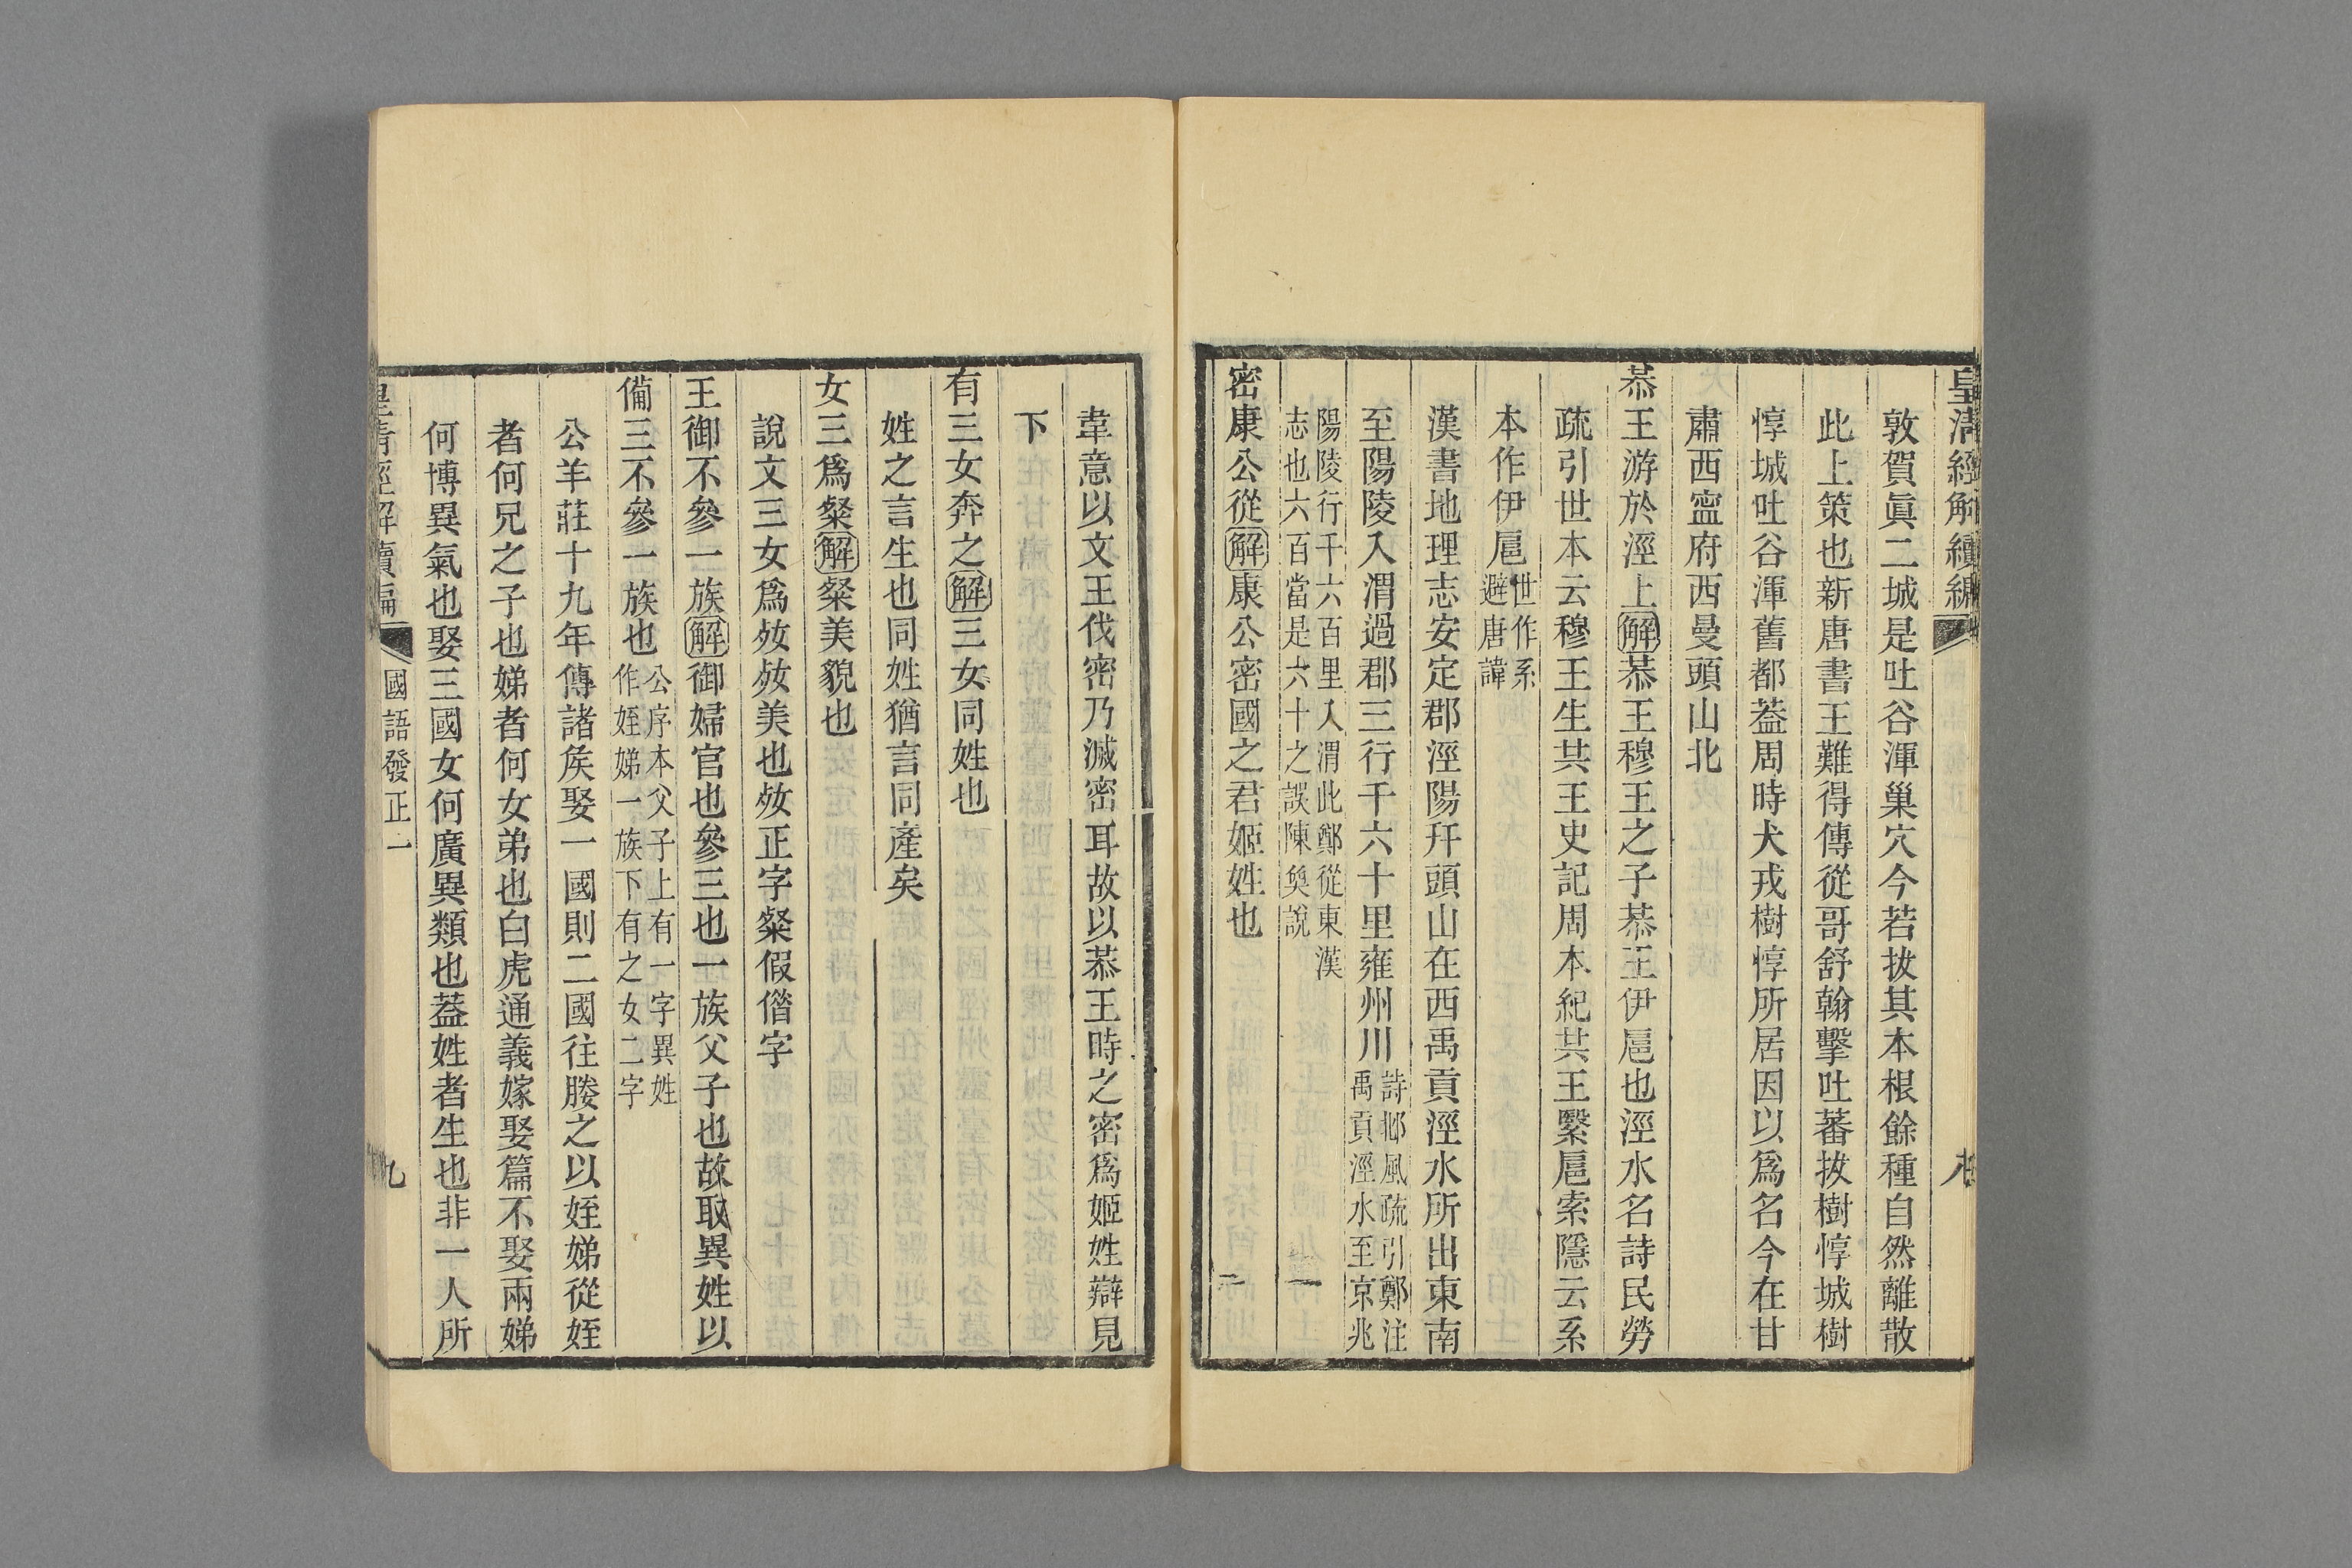 皇清經解續編
敦賀眞二城是吐谷渾巢穴今若拔其本根餘種自然離散
此上策也新唐書王難得傳從哥舒翰擊吐蕃拔樹惇城樹
惇城吐谷渾舊都蓋周時犬戎樹惇所居因以爲名今在甘
肅西寧府西曼頭山北
恭王游於涇上解恭王穆王之子恭王伊扈也涇水名詩民勞
疏引世本云穆王生共王史記周本紀共王繄扈索隱云系
本作伊扈世作系避唐諱
漢書地理志安定郡涇陽幵頭山在西禹貢涇水所出東南
至陽陵入渭過郡三行千六十里雍州川詩邶風疏引鄭注禹貢涇水至京兆
陽陵行千六百里入渭此鄭從東漢志也六百當是六十之誤陳奐說
密康公從解康公密國之君姬姓也
韋意以文王伐密乃滅密耳故以恭王時之密爲姬姓辯見
下
有三女奔之解三女同姓也
姓之言生也同姓猶言同產矣
女三爲粲解粲美貌也
說文三女爲㚣㚣美也㚣正字粲假借字
王御不參一族解御婦官也參三也一族父子也故取異姓以
備三不參一族也公序本父子上有一字異姓作姪娣一族下有之女二字
公羊莊十九年傳諸矦娶一國則二國往媵之以姪娣從姪
者何兄之子也娣者何女弟也白虎通義嫁娶篇不娶兩娣
何博異氣也娶三國女何廣異類也蓋姓者生也非一人所
皇清經解續編
國語發正二
九